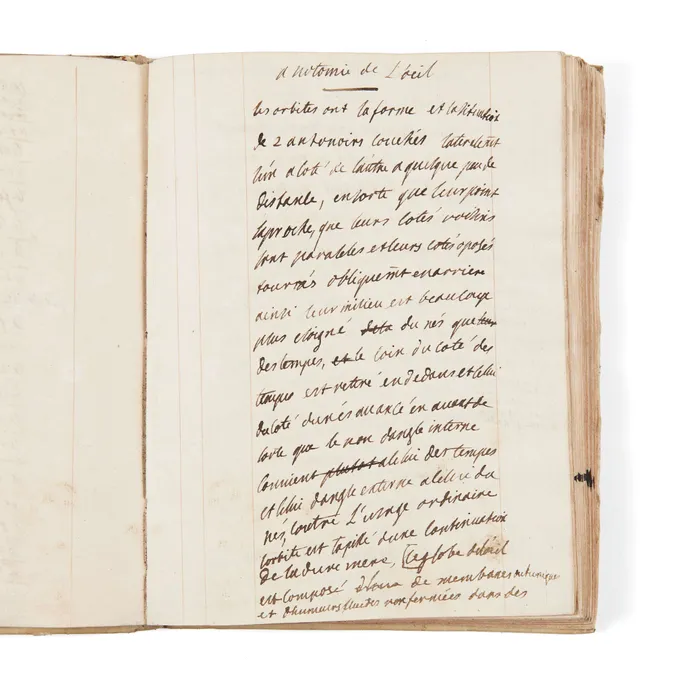 anotomie de L'oeil
les orbites ont la forme et la situation
de 2 antonoirs couchés lateralem̄t
l'un a loté de l'autre a quelque peu de
distance, ensorte que leur point
saproche, que leurs cotés voisins
sont paraleles et leurs cotés oposés
tournés obliquem̄t en arriere
ainsi leur milieu est beaucoup
plus eloigné du nés que
des tempes, le coin du coté des
tempes est retiré en dedans et celui
du coté du nés avancé en avant de
sorte que le nom dangle interne
convient plutot a celui des tempes
et celui dangle externe a celui du
nés, contre L'usage ordinaire
lorbite est tapissé dune continuation
de la dure mere, Le globe de loeil
est composé de membranes ou tuniques
et dhumeurs fluides renfermées dans des